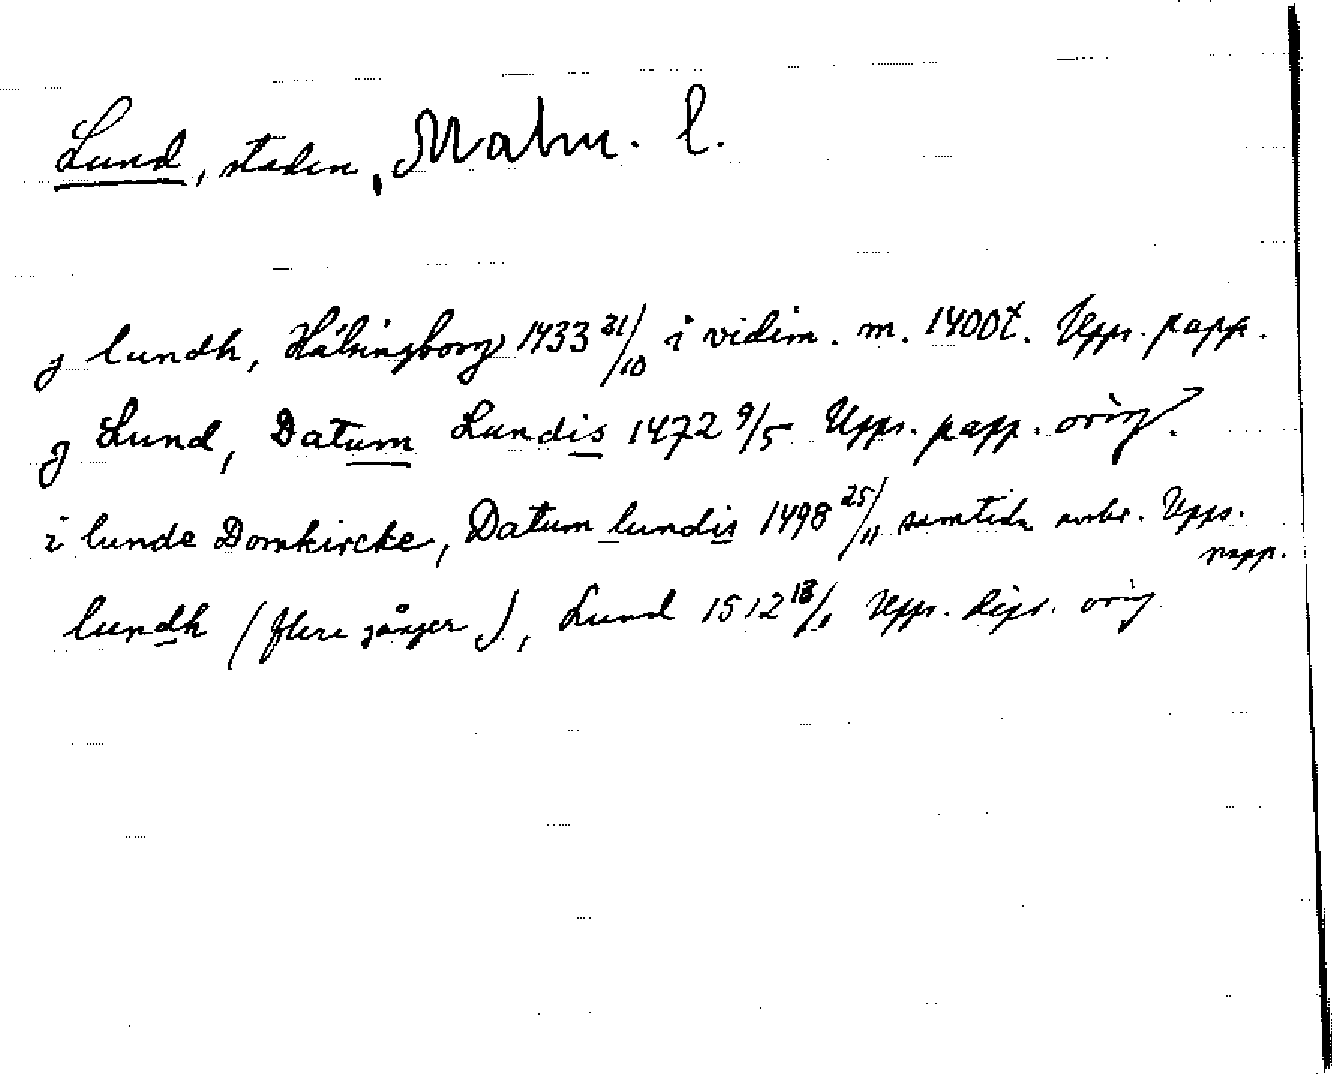 Lund, staden, Malm. l.
j lundh, Hälsingborg 1433 21/10 i vidim. m. 1400t. Upps. papp.
j Lund, Datum Lundis 1472 9/5 Upps. papp. orig.
i lunde Domkircke, Datum lundis 1498 25/11 samtida avskr. Upps.
papp.
lundh (flere gånger), Lund 1512 18/1 Upps. dipl. orig